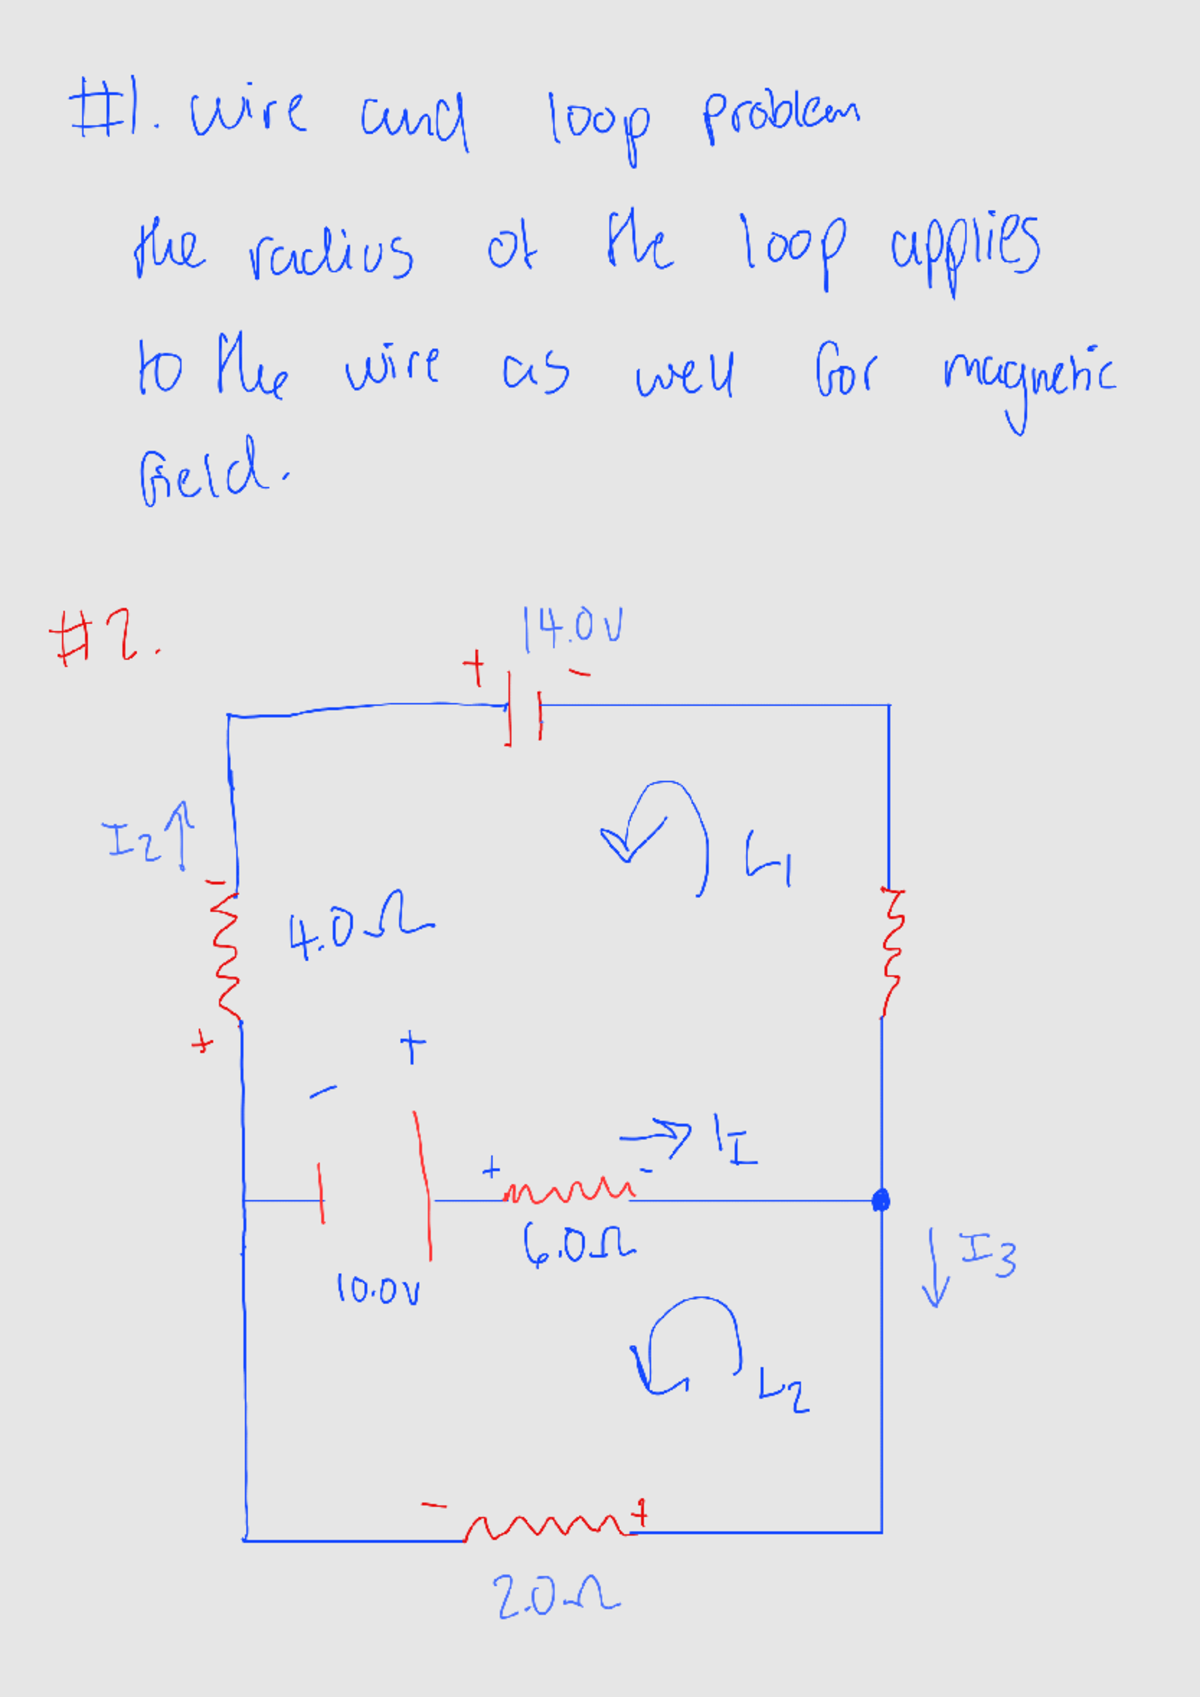 #1. wire and loop problem
the radius of the loop applies
to the wire as well for magnetic
field.
#2.
14.0V
+ -
I2↑
L1
-
4.0Ω
+
- +
+ - → I1
6.0Ω
10.0V
↓ I3
L2
- +
2.0Ω